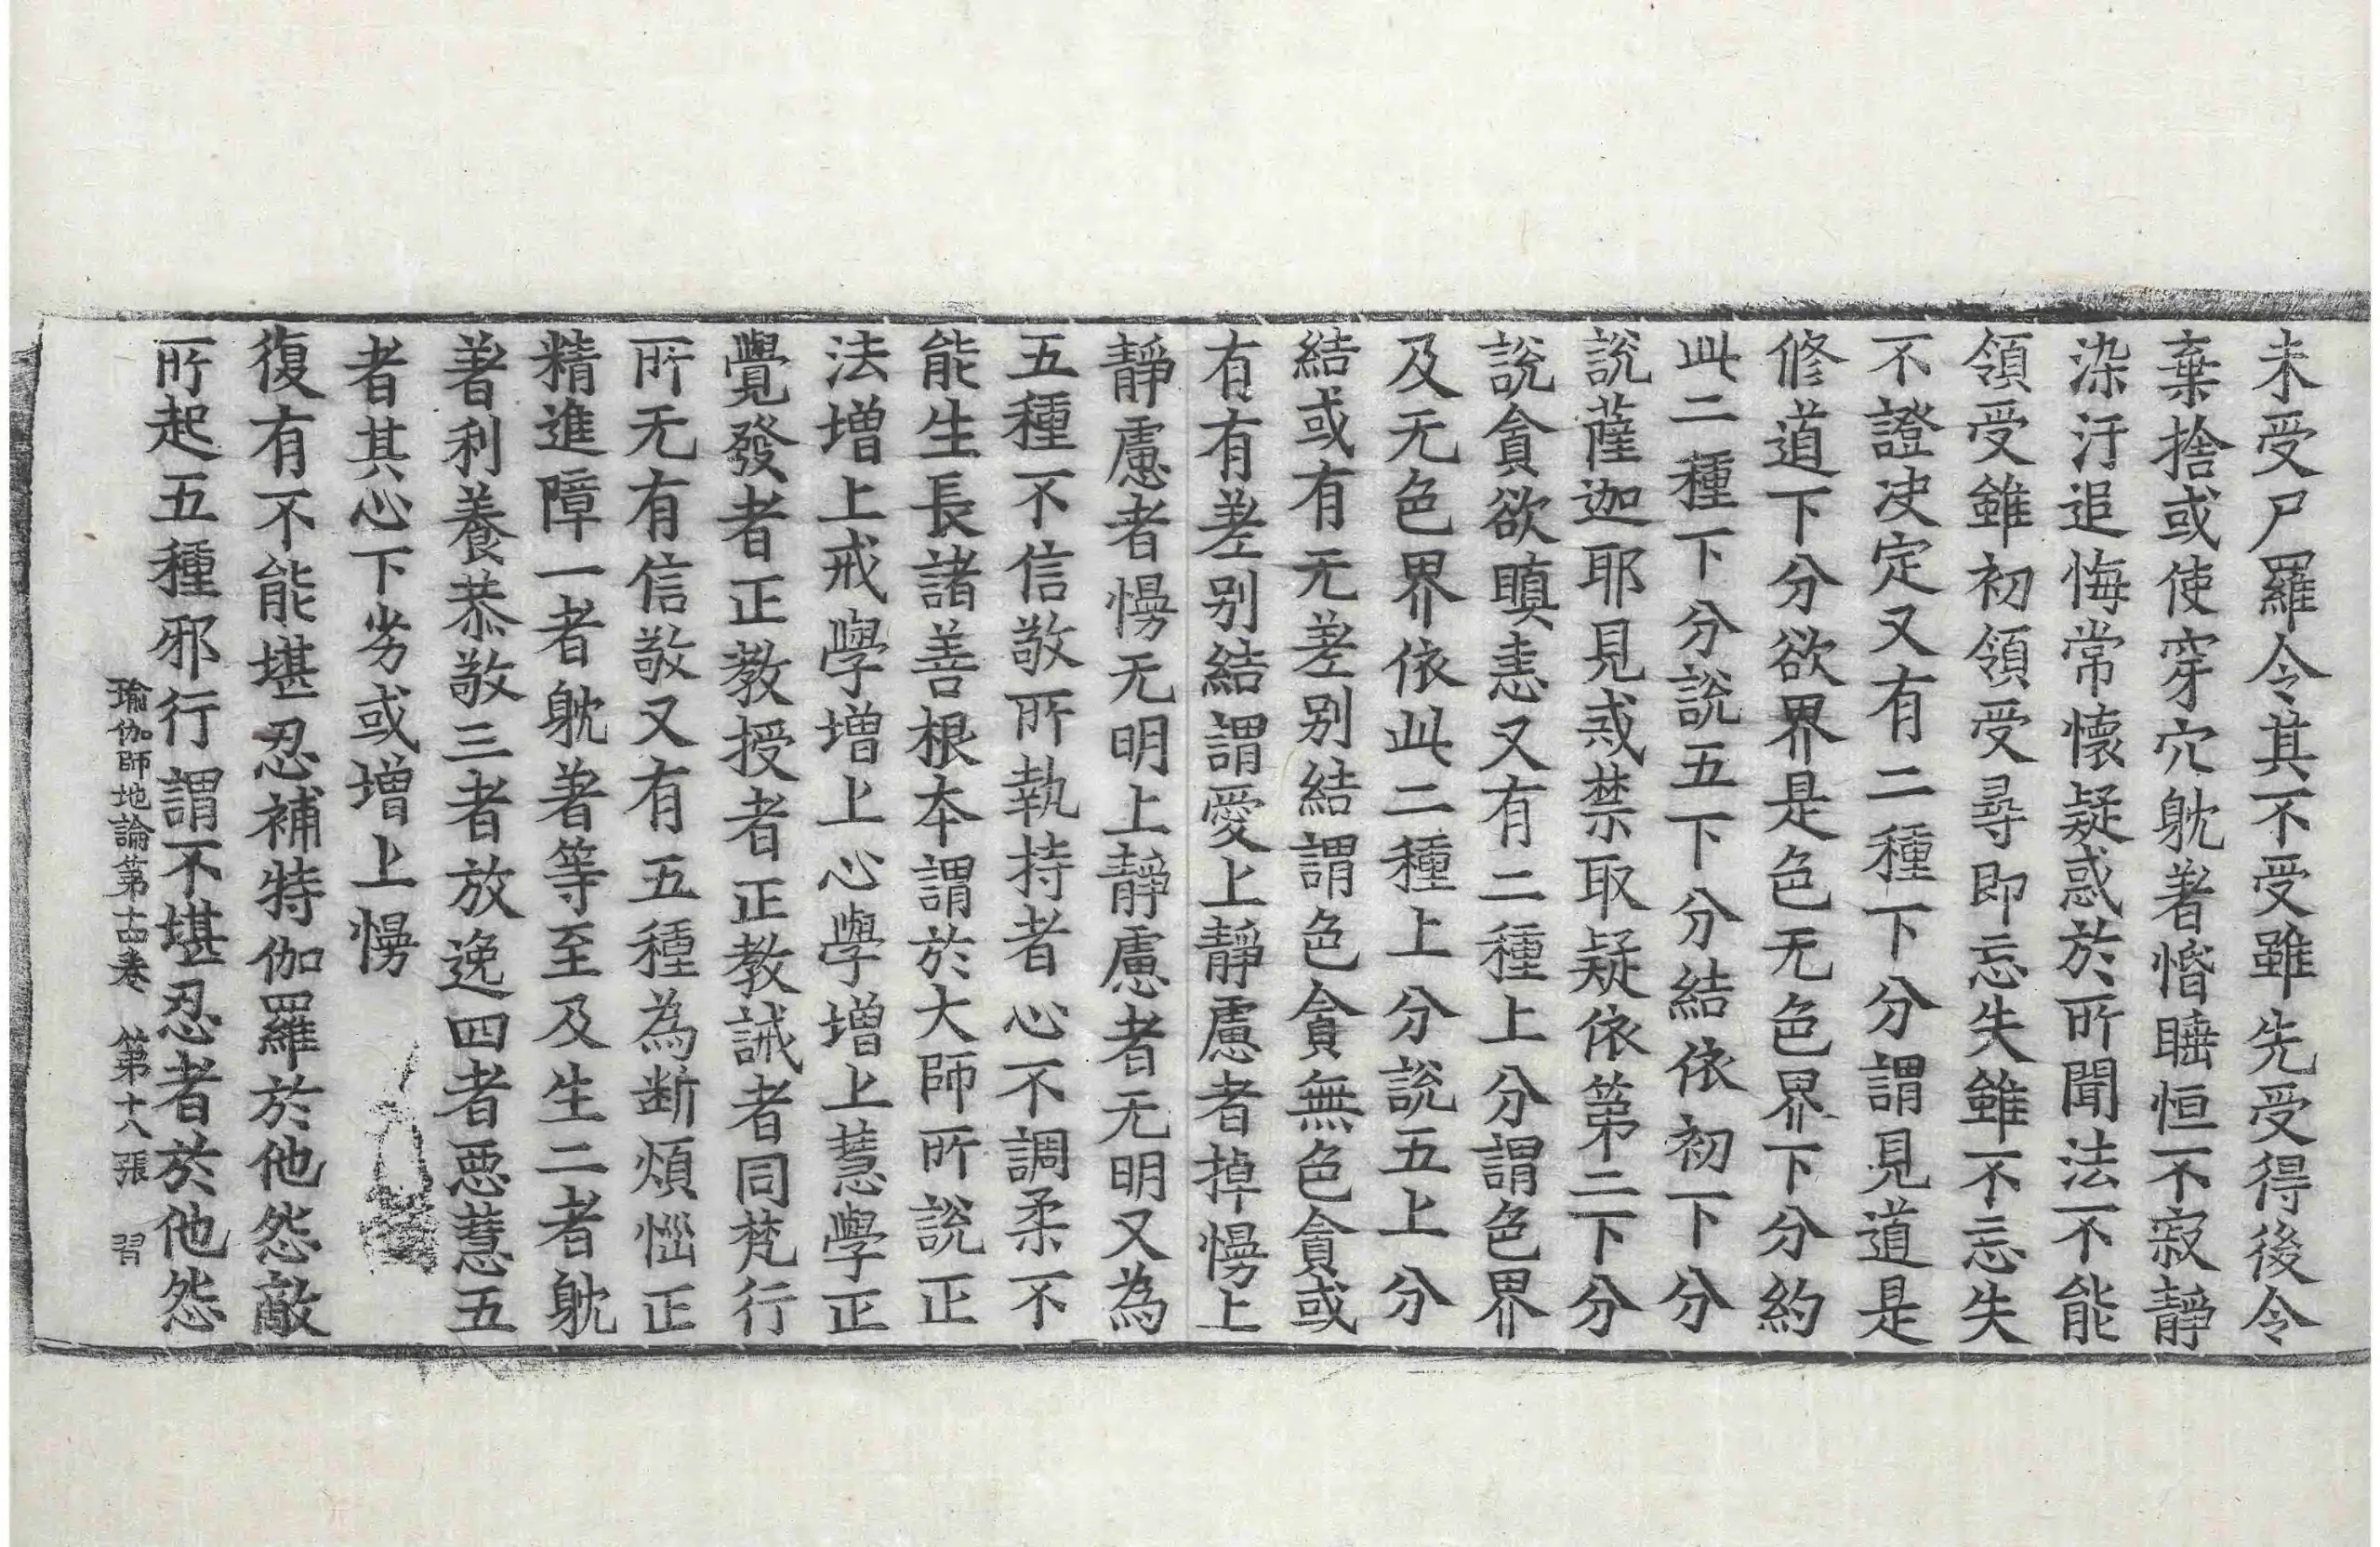 未受尸羅令其不受雖先受得後令
棄捨或使穿穴躭著惛睡恒不寂靜
染汙追悔常懷疑惑於所聞法不能
領受雖初領受尋即忘失雖不忘失
不證决定又有二種下分謂見道是
修道下分欲界是色无色界下分約
此二種下分說五下分結依初下分
說薩迦耶見戒禁取疑依第二下分
說貪欲瞋恚又有二種上分謂色界
及无色界依此二種上分說五上分
結或有无差别結謂色貪無色貪或
有有差别結謂愛上靜慮者掉慢上
靜慮者慢无明上靜慮者无明又為
五種不信敬所執持者心不調柔不
能生長諸善根本謂於大師所說正
法增上戒學增上心學增上慧學正
覺發者正教授者正教誡者同梵行
所无有信敬又有五種為断煩惱正
精進障一者躭著等至及生二者躭
著利養恭敬三者放逸四者惡慧五
者其心下劣或增上慢
復有不能堪忍補特伽羅於他怨敵
所起五種邪行謂不堪忍者於他怨
瑜伽師地論第十四卷　第十八張　習